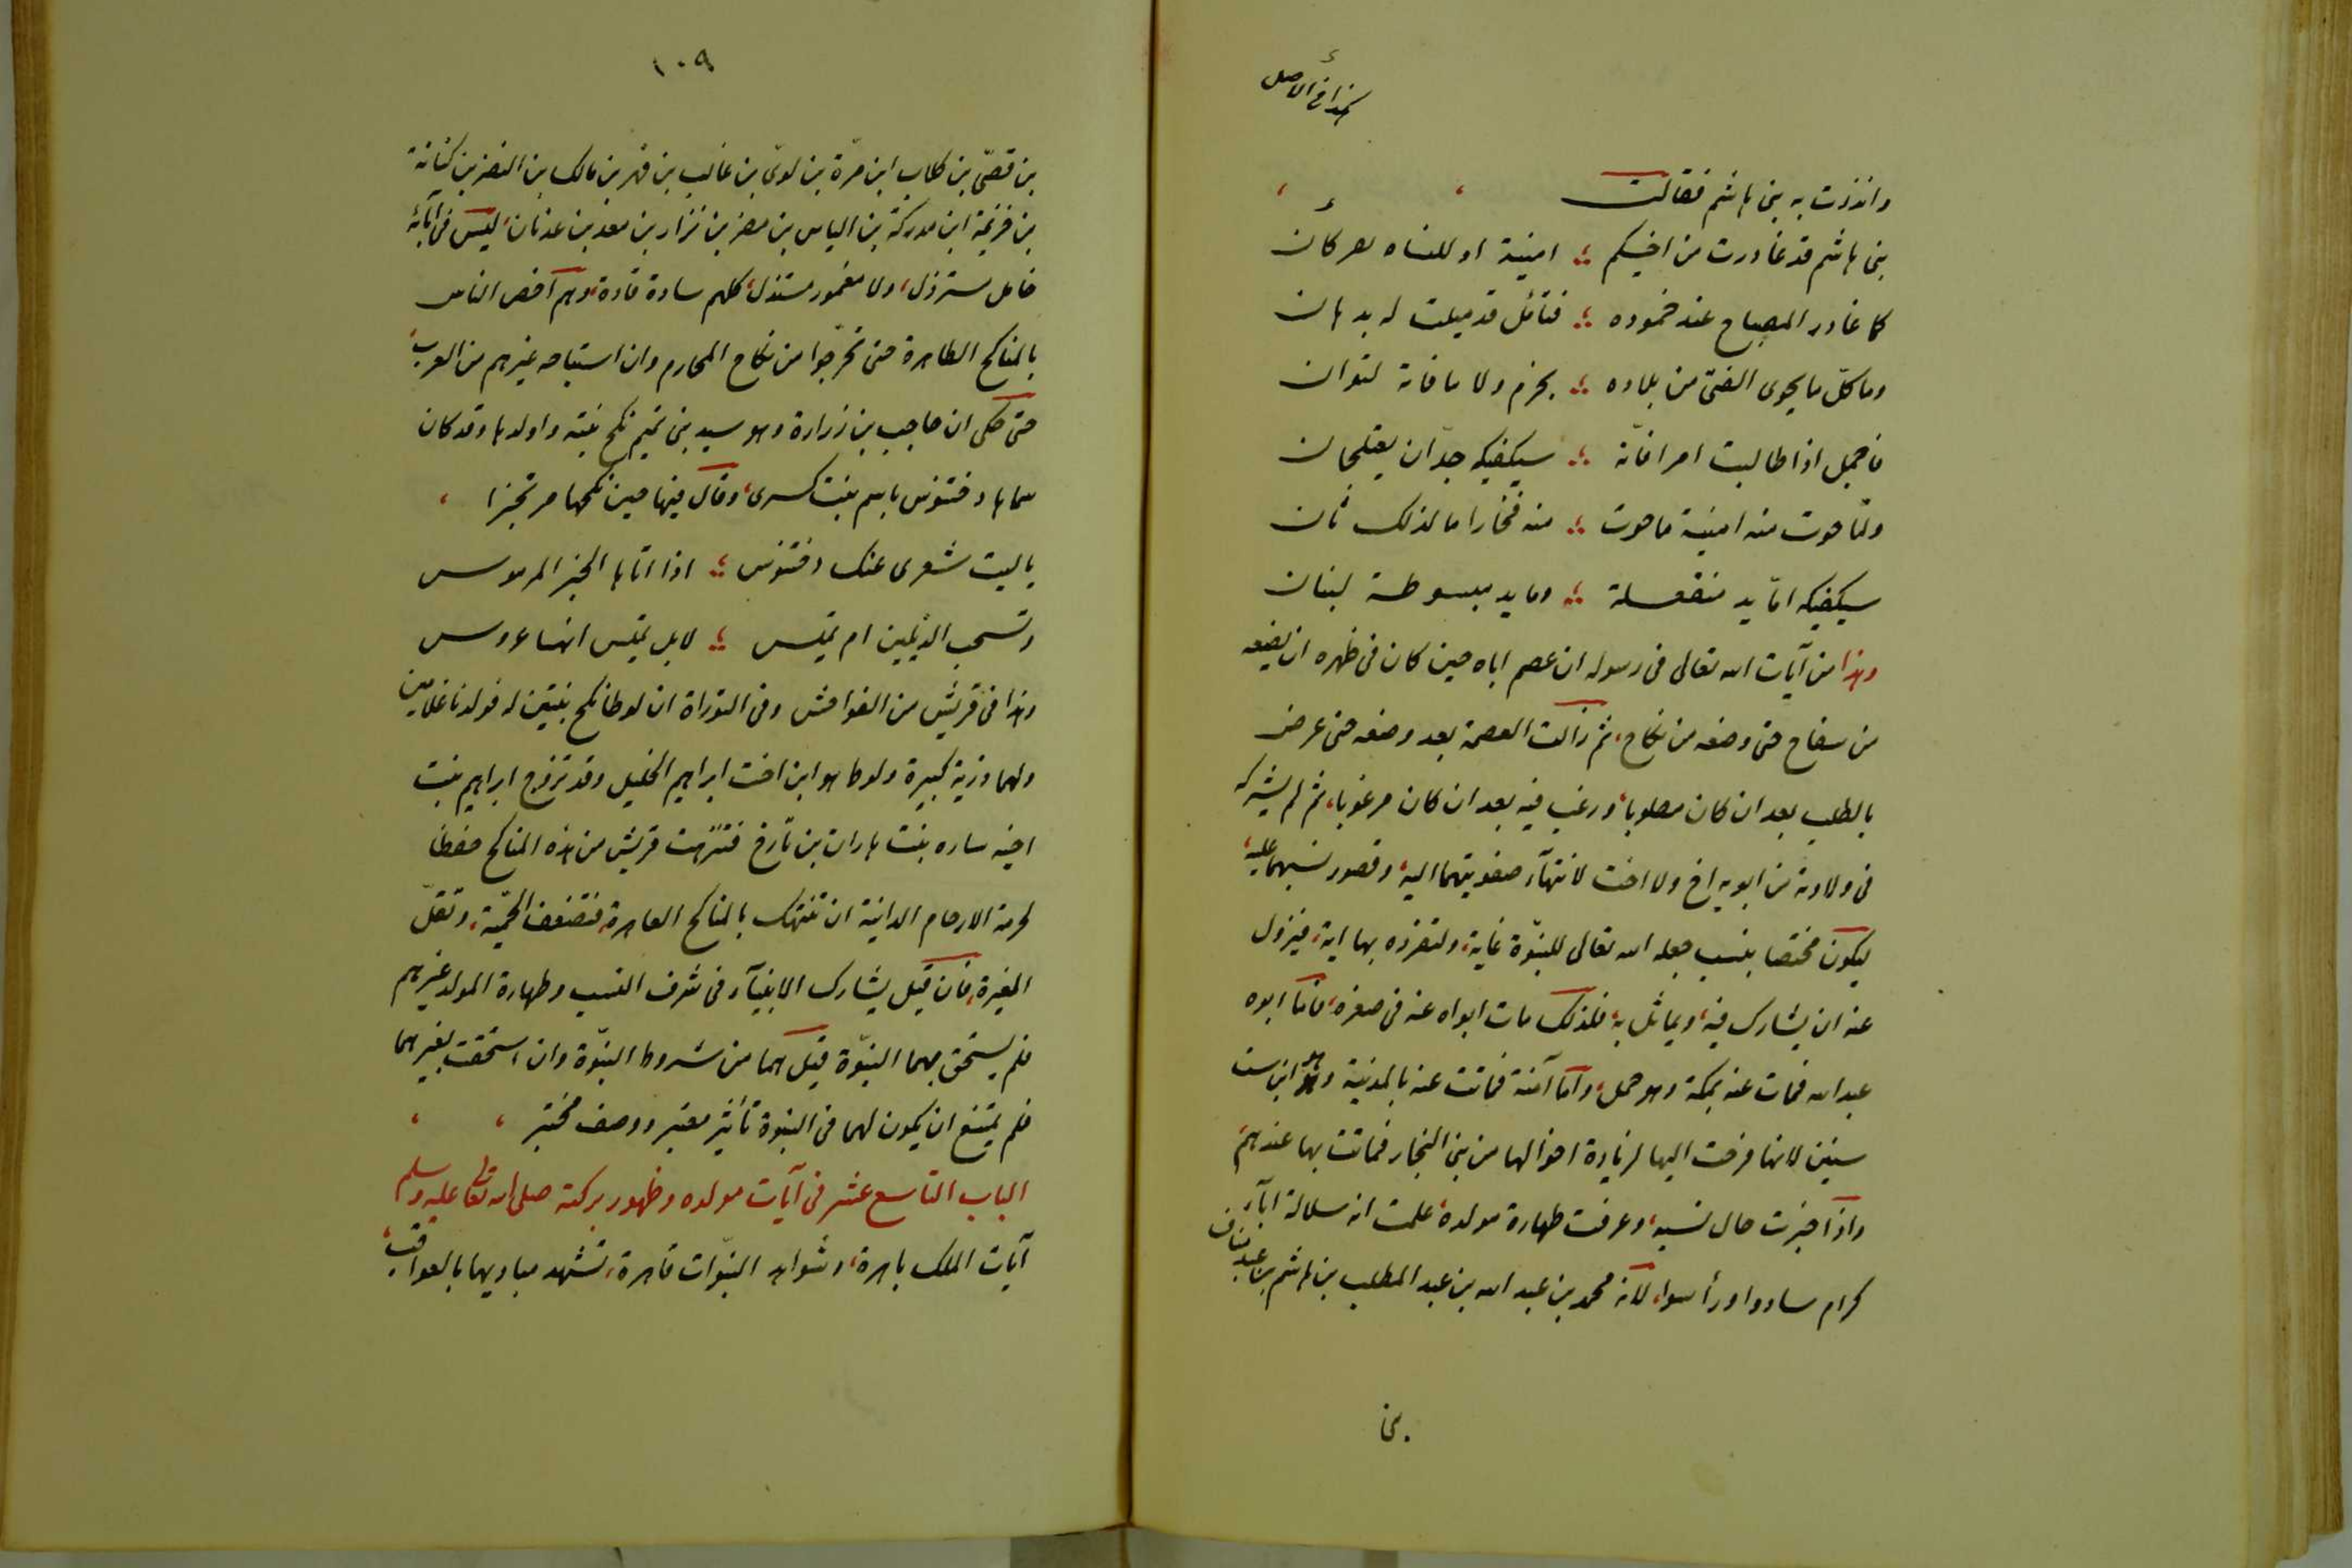 كذا في الاصل
وانذرت به بنى هاشم فقالت
بنى هاشم قد غادرت من اخيكم ؛ امينة او للباه يعركان
كما غادر المصباح عند خموده ؛ فتائل قد ميلت له بدهان
وما كلّ ما يحوى الفتى من بلاده ؛ بحزم ولا ما فاته لتوان
فاجمل اذا طالبت امرا فانّه ؛ سيكفيكه جدّان يعتلجان
ولمّا حوت منه امينة ما حوت ؛ منه فخارا ما لذلك ثان
سيكفيكه امّا يد مقفعلة ؛ وما يد مبسوطة لبنان
وهذا من آيات الله تعالى فى رسوله ان عصم اباه حين كان فى ظهره ان يضعه
من سفاح حتى وضعه من نكاح، ثم زالت العصمة بعد وضعه حتى عرض
بالطلب بعد ان كان مطلوبا، ورغب فيه بعد ان كان مرغوبا، ثم لم يشركه
فى ولادته من ابويه اخ ولا اخت لانتهآء صفوتهما اليه، وقصور نسبهما عليه،
ليكون مختصا بنسب جعله الله تعالى للنبوّة غاية، ولتفرده بها اية، فيزول
عنه ان يشارك فيه، ويماثل به، فلذلك مات ابواه عنه فى صغره، فاما ابوه
عبد الله فمات عنه بمكة وهو حمل، واما آمنة فماتت عنه بالمدينة وهو ابن ست
سنين لانها خرجت اليها لزيادة اخوالها من بنى النجار فماتت بها عندهم،
واذا خبرت حال نسبه، وعرفت طهارة مولده، علمت انه سلالة ابآء
كرام سادوا ورأسوا، لانه محمد بن عبد الله بن عبد المطلب بن هاشم بن عبد مناف
بن
١٠٩
بن قصىّ بن كلاب ابن مرّة بن لوىّ بن غالب بن فهر بن مالك بن النضر بن كنانة
بن خزيمة ابن مدركة بن الياس بن مضر بن نزار بن معد بن عدنان، ليس فى آبائه
خامل مسترذل، ولا مغمور مستذل، كلهم سادة قادة، وهم اخص الناس
بالمناكح الطاهرة حتى تحرّجوا من نكاح المحارم وان استباحه غيرهم من العرب،
حتى حكى ان حاجب بن زرارة وهو سيد بنى تميم نكح بنته واولدها وقد كان
سماها دختنوس باسم بنت كسرى، وقال فيها حين نكحها مرتجزا
ياليت شعرى عنك دختنوس ؛ اذا اتاها الخبر المرموس
وتسحب الذيلين ام تميس ؛ لا بل تميس انها عروس
وهذا فى قريش من الفواحش وفى التوراة ان لوطا نكح بنتين له فولدتا غلامين
ولهما ذرية كبيرة ولوط هو ابن اخت ابراهيم الخليل وقد تزوج ابراهيم بنت
اخيه ساره بنت هاران بن تارخ فتنزهت قريش من هذه المناكح حفظا
لحرمة الارحام الدانية ان تنتهك بالمناكح العاهرة، فتضعف الحميّة، وتقلّ
الغيرة، فان قيل يشارك الانبيآء فى شرف النسب وطهارة المولد غيرهم
فلم يستحق بهما النبوّة قيل هما من شروط النبوّة وان استحقت بغيرهما
فلم يمتنع ان يكون لهما فى النبوة تأثير معتبر ووصف مختبر
الباب التاسع عشر فى آيات مولده وظهور بركته صلى الله تعالى عليه وسلم
آيات الملك باهرة، وشواهد النبوّات قاهرة، تشهد مباديها بالعواقب،